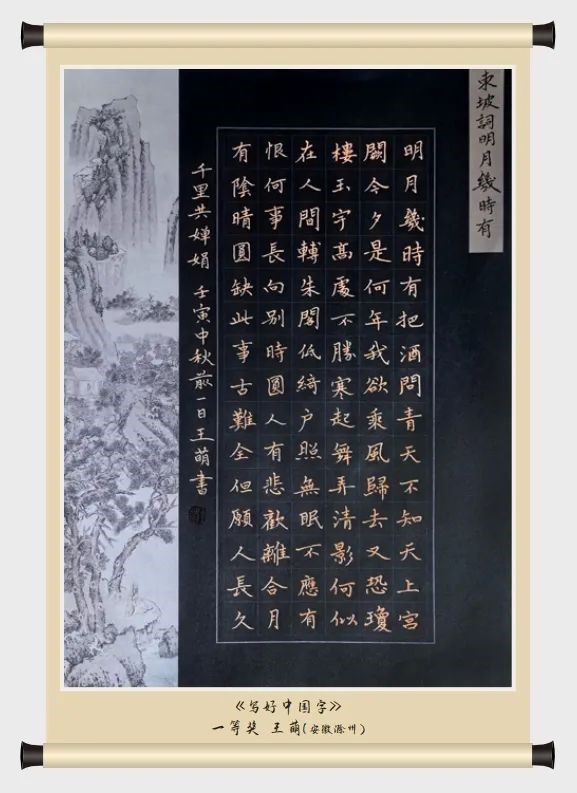 東坡詞明月幾時有
明月幾時有把酒問青天不知天上宮
闕今夕是何年我欲乘風歸去又恐瓊
樓玉宇高處不勝寒起舞弄清影何似
在人間轉朱閣低綺户照無眠不應有
恨何事長向別時圓人有悲歡離合月
有陰晴圓缺此事古難全但願人長久
千里共嬋娟 壬寅中秋前一日王萌書
《写好中国字》
一等奖 王萌(安徽滁州)